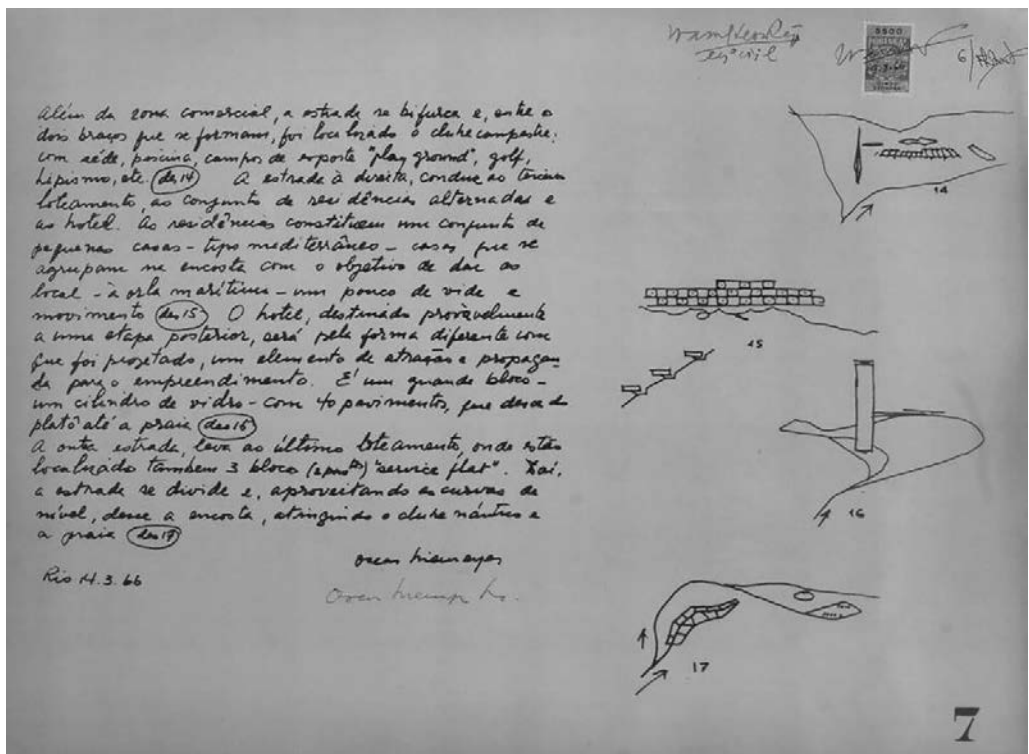 Além da zona comercial, a estrada se bifurca e, entre o
dois braços que se formam, foi localizado o clube campestre:
com séde, piscina, campos de esporte "play ground", golf,
hipismo, etc. (des 14) A estrada à direita, conduz ao terceiro
loteamento, ao conjunto de residências alternadas e
ao hotel. As residências constituem um conjunto de
pequenas casas - tipo mediterrâneo - casas que se
agrupam na encosta com o objetivo de dar ao
local - à orla marítima - um pouco de vida e
movimento (des 15) O hotel, destinado provavelmente
a uma etapa posterior, será pela forma diferente com
que foi projetado, um elemento de atração e propagan-
da para o empreendimento. É um grande bloco -
um cilindro de vidro - com 40 pavimentos, que desce do
platô até a praia (des 16)
A outra estrada, leva ao último loteamento, onde estão
localizado tambem 3 bloco "service flat". Daí,
a estrada se divide e, aproveitando as curvas de
nível, desce a encosta, atingindo o clube náutico e
a praia (des 17)
oscar niemeyer
Rio 14.3.66
14
15
16
17
7